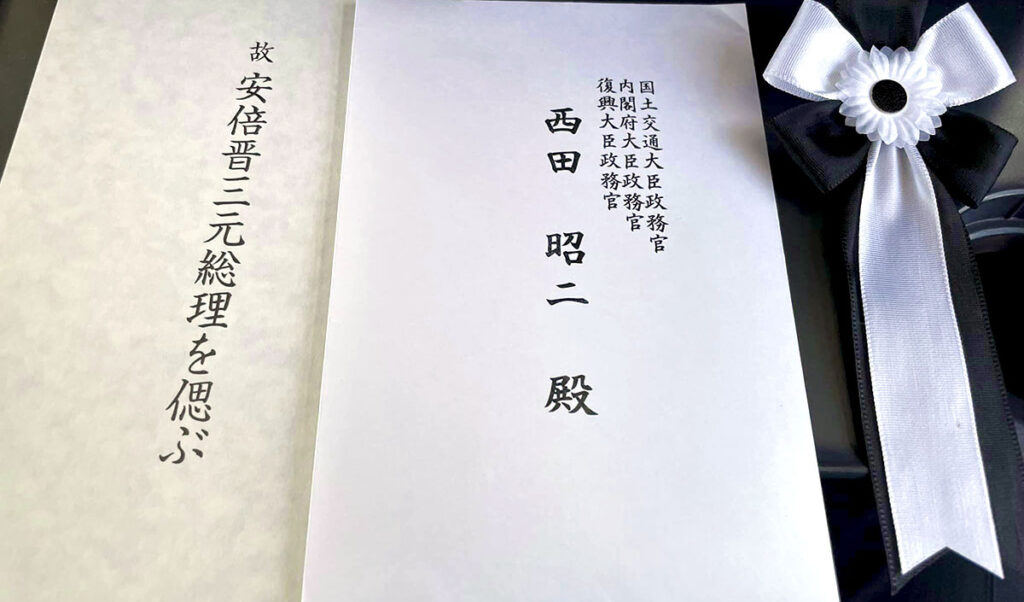 故 安倍晋三元総理を偲ぶ
国土交通大臣政務官
内閣府大臣政務官
復興大臣政務官
西田 昭二 殿